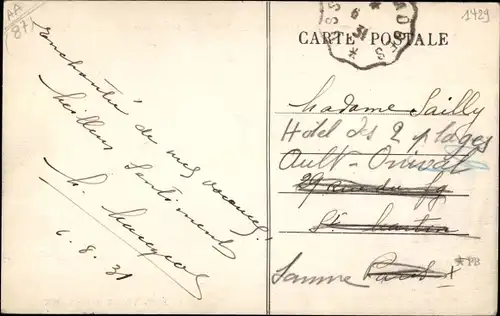 AA
87
1429
CARTE POSTALE
enchantée de mes vacances.
Meilleurs Sentiments
6.8.31
Madame Sailly
Hôtel des 2 plages
Ault-Onival
29 Rue du fg
St Martin
Somme Paris X
*PB